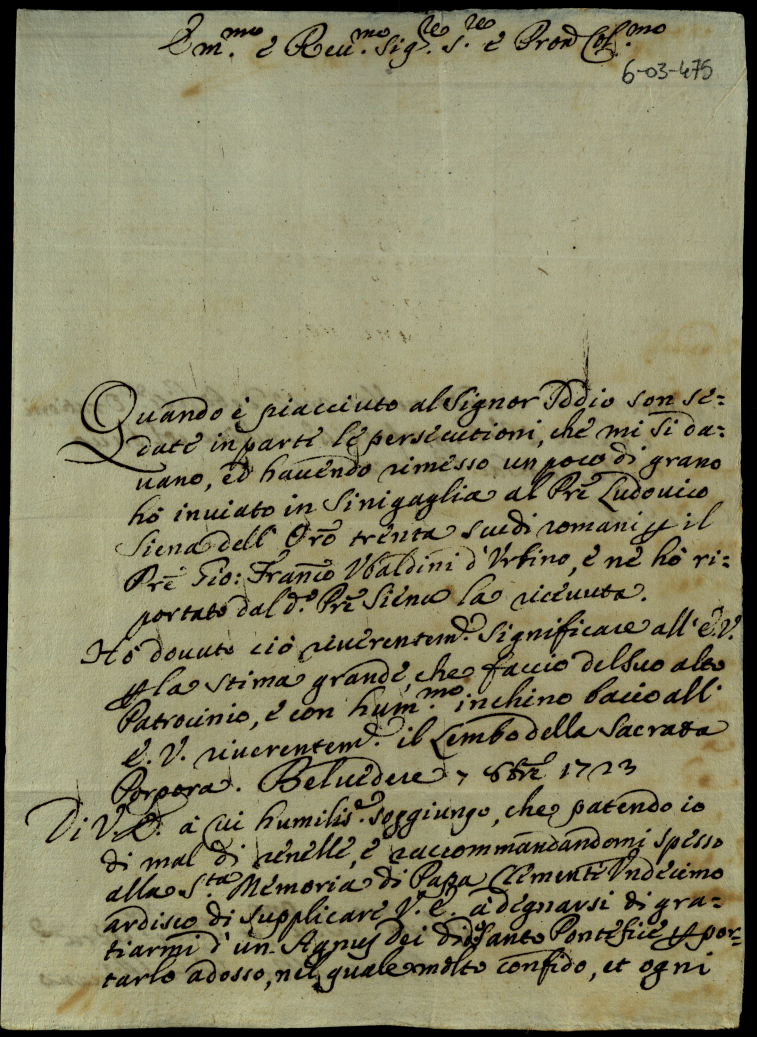 Em.mo e Reu.mo Sig.re S.re e Pron Col.mo
6-03-475
Quando è piacciuto al Signor Iddio son se=
date in parte le persecutioni, che mi si da=
uano, ed hauendo rimesso un poco di grano
hò inuiato in Sinigaglia al Prē Ludouico
Siena dell' Orō trenta scudi romani p il
Prē Gio: Franc̄o Vbaldini d'Vrbino, e nè hò ri=
portato dal d.o Prē Siena la riceuuta.
Hò douuto ciò riuerentem.e significare all' E.V.
p la stima grande, che faccio del suo alto
Patrocinio, e con hum.mo inchino baccio all'
E. V. riuerentem.e il Lembo della Sacrata
Porpora. Beluedere 7 1723
Di V.E. à cui humilis.e soggiungo, che patendo io
di mal di renelle, e raccommandandomi spesso
alla S.ta Memoria di Papa Clemente Vndecimo
ardisco di supplicare V.E. à degnarsi di gra=
tiarmi d'un Agnus Dei di d.o Santo Pontefice p por=
tarlo adosso, nel quale molto confido, et ogni